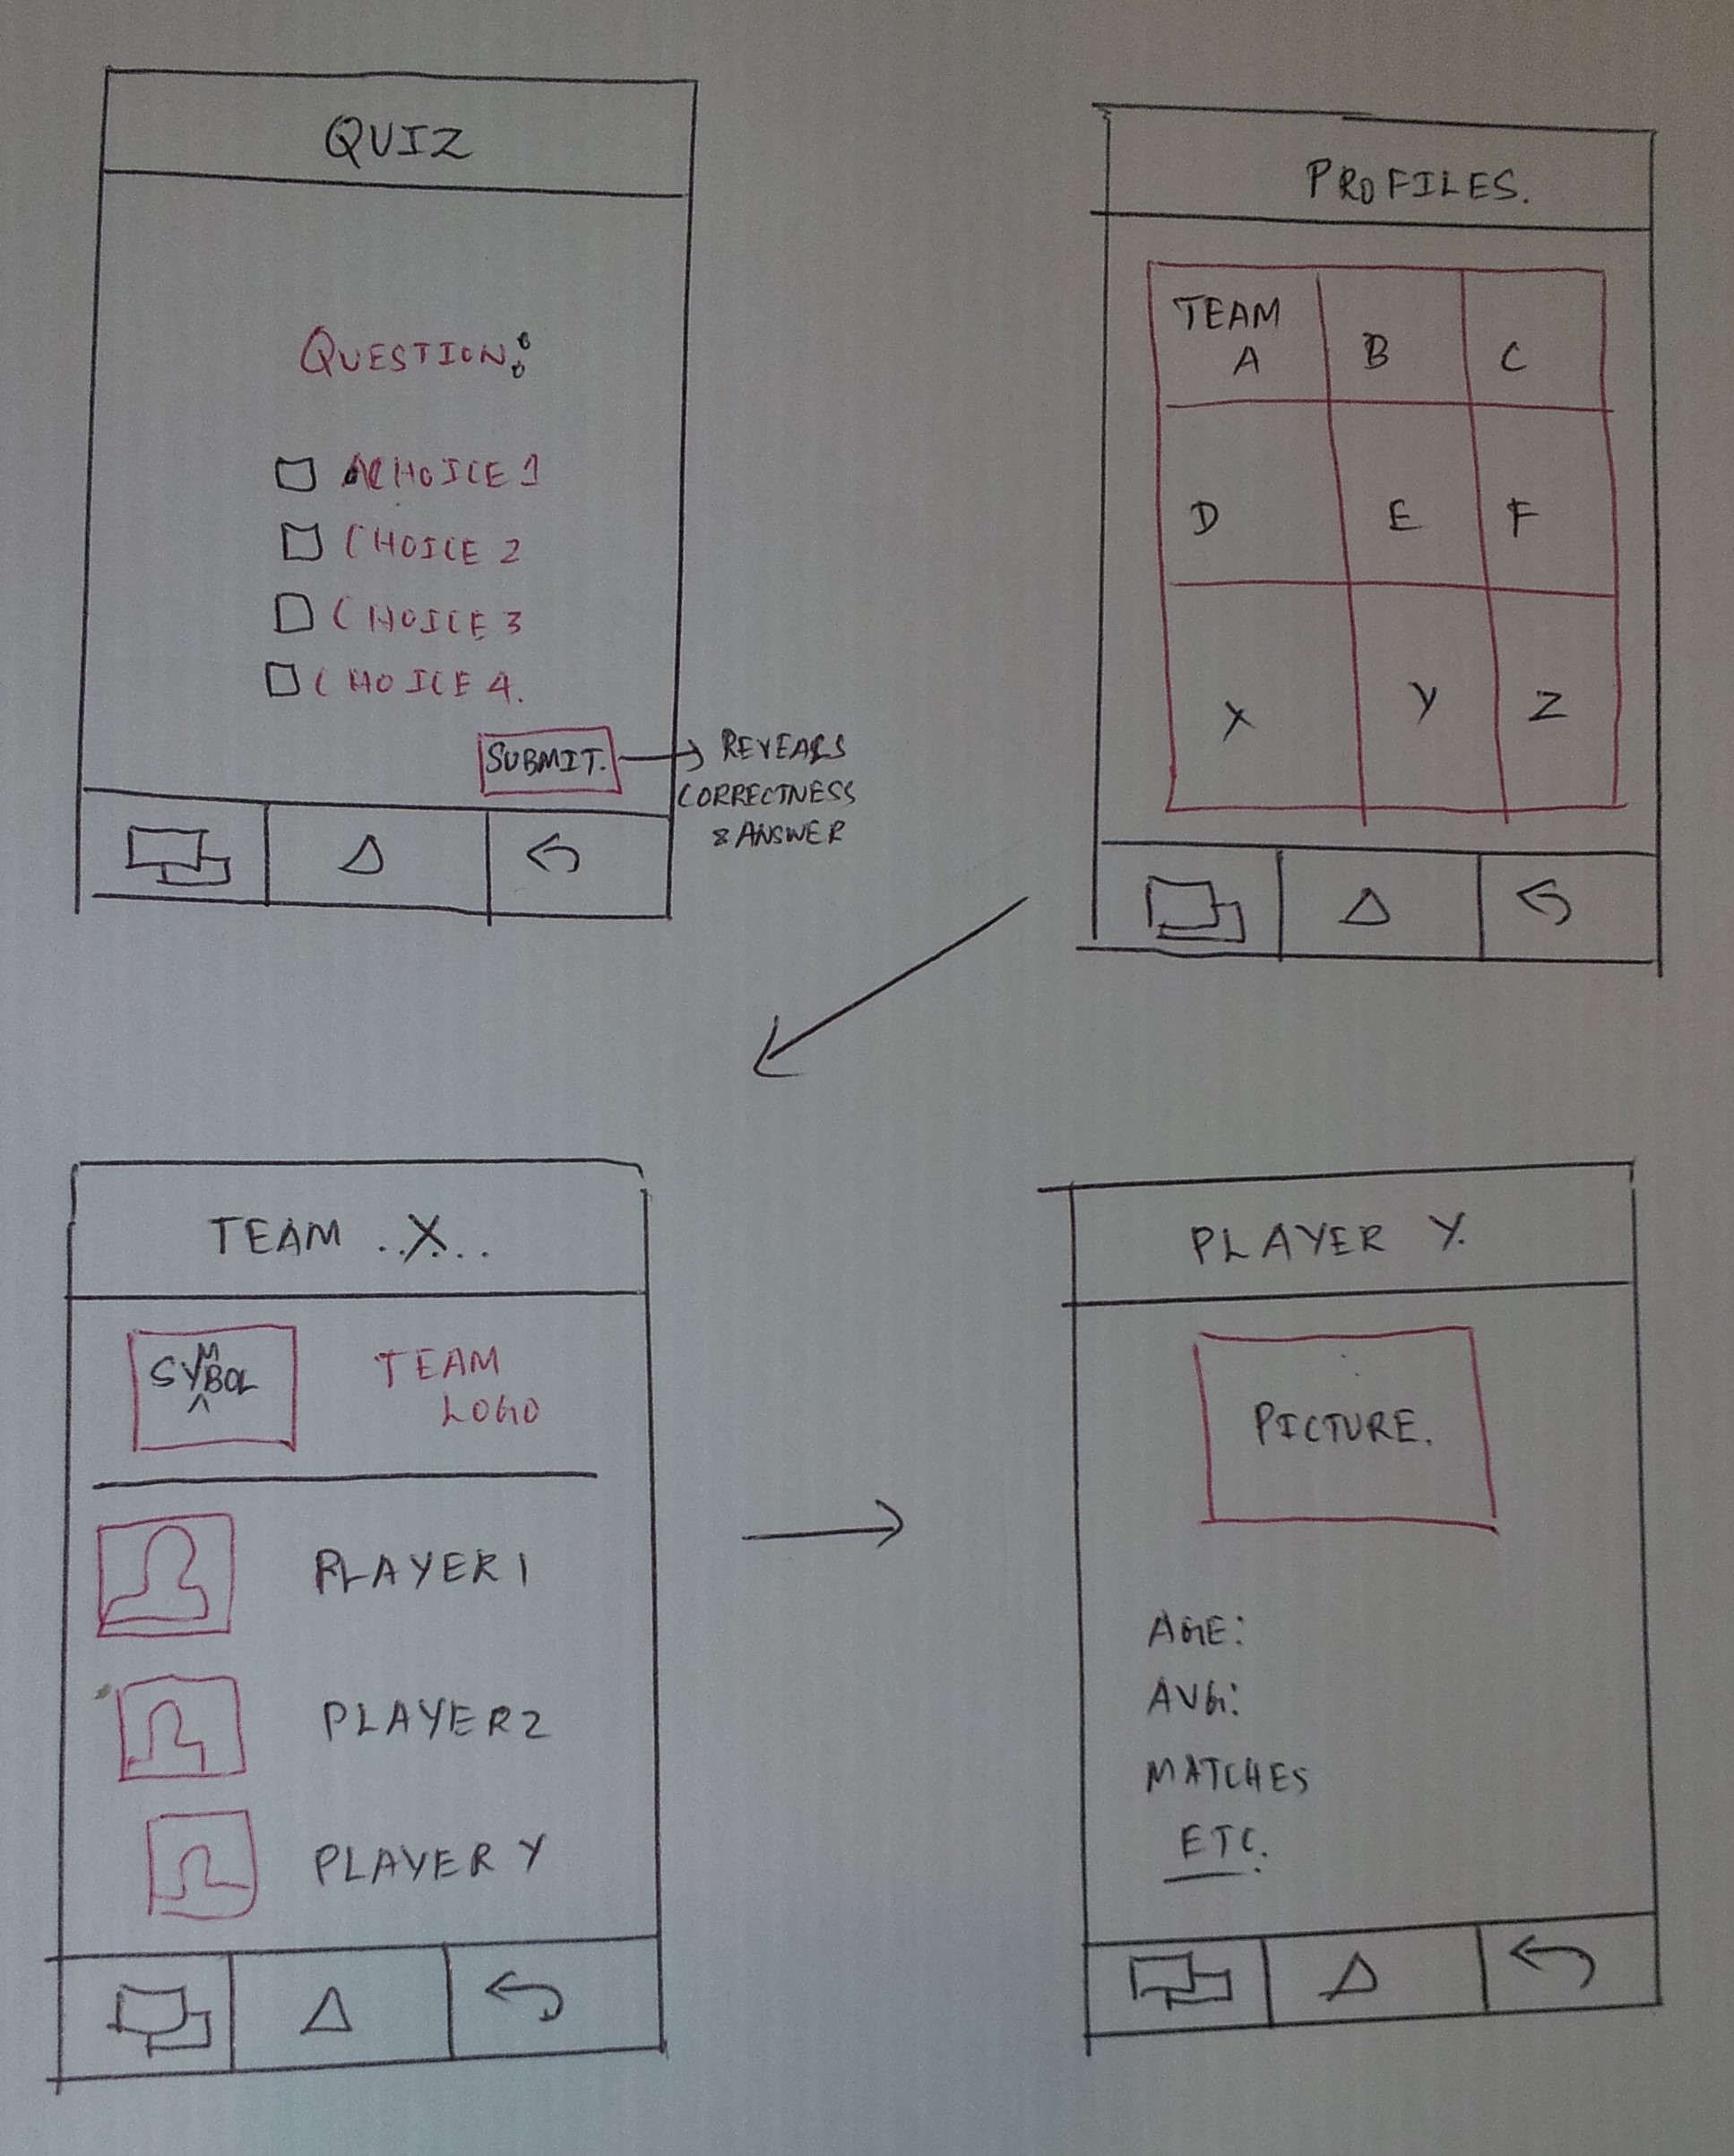 QUIZ
QUESTION:
CHOICE 1
CHOICE 2
CHOICE 3
CHOICE 4.
SUBMIT.
REVEALS
CORRECTNESS
& ANSWER
PROFILES.
TEAM
A
B
C
D
E
F
X
Y
Z
TEAM ..X...
SYMBOL
TEAM
LOGO
PLAYER 1
PLAYER 2
PLAYER Y
PLAYER Y.
PICTURE.
AGE:
AVG:
MATCHES
ETC.